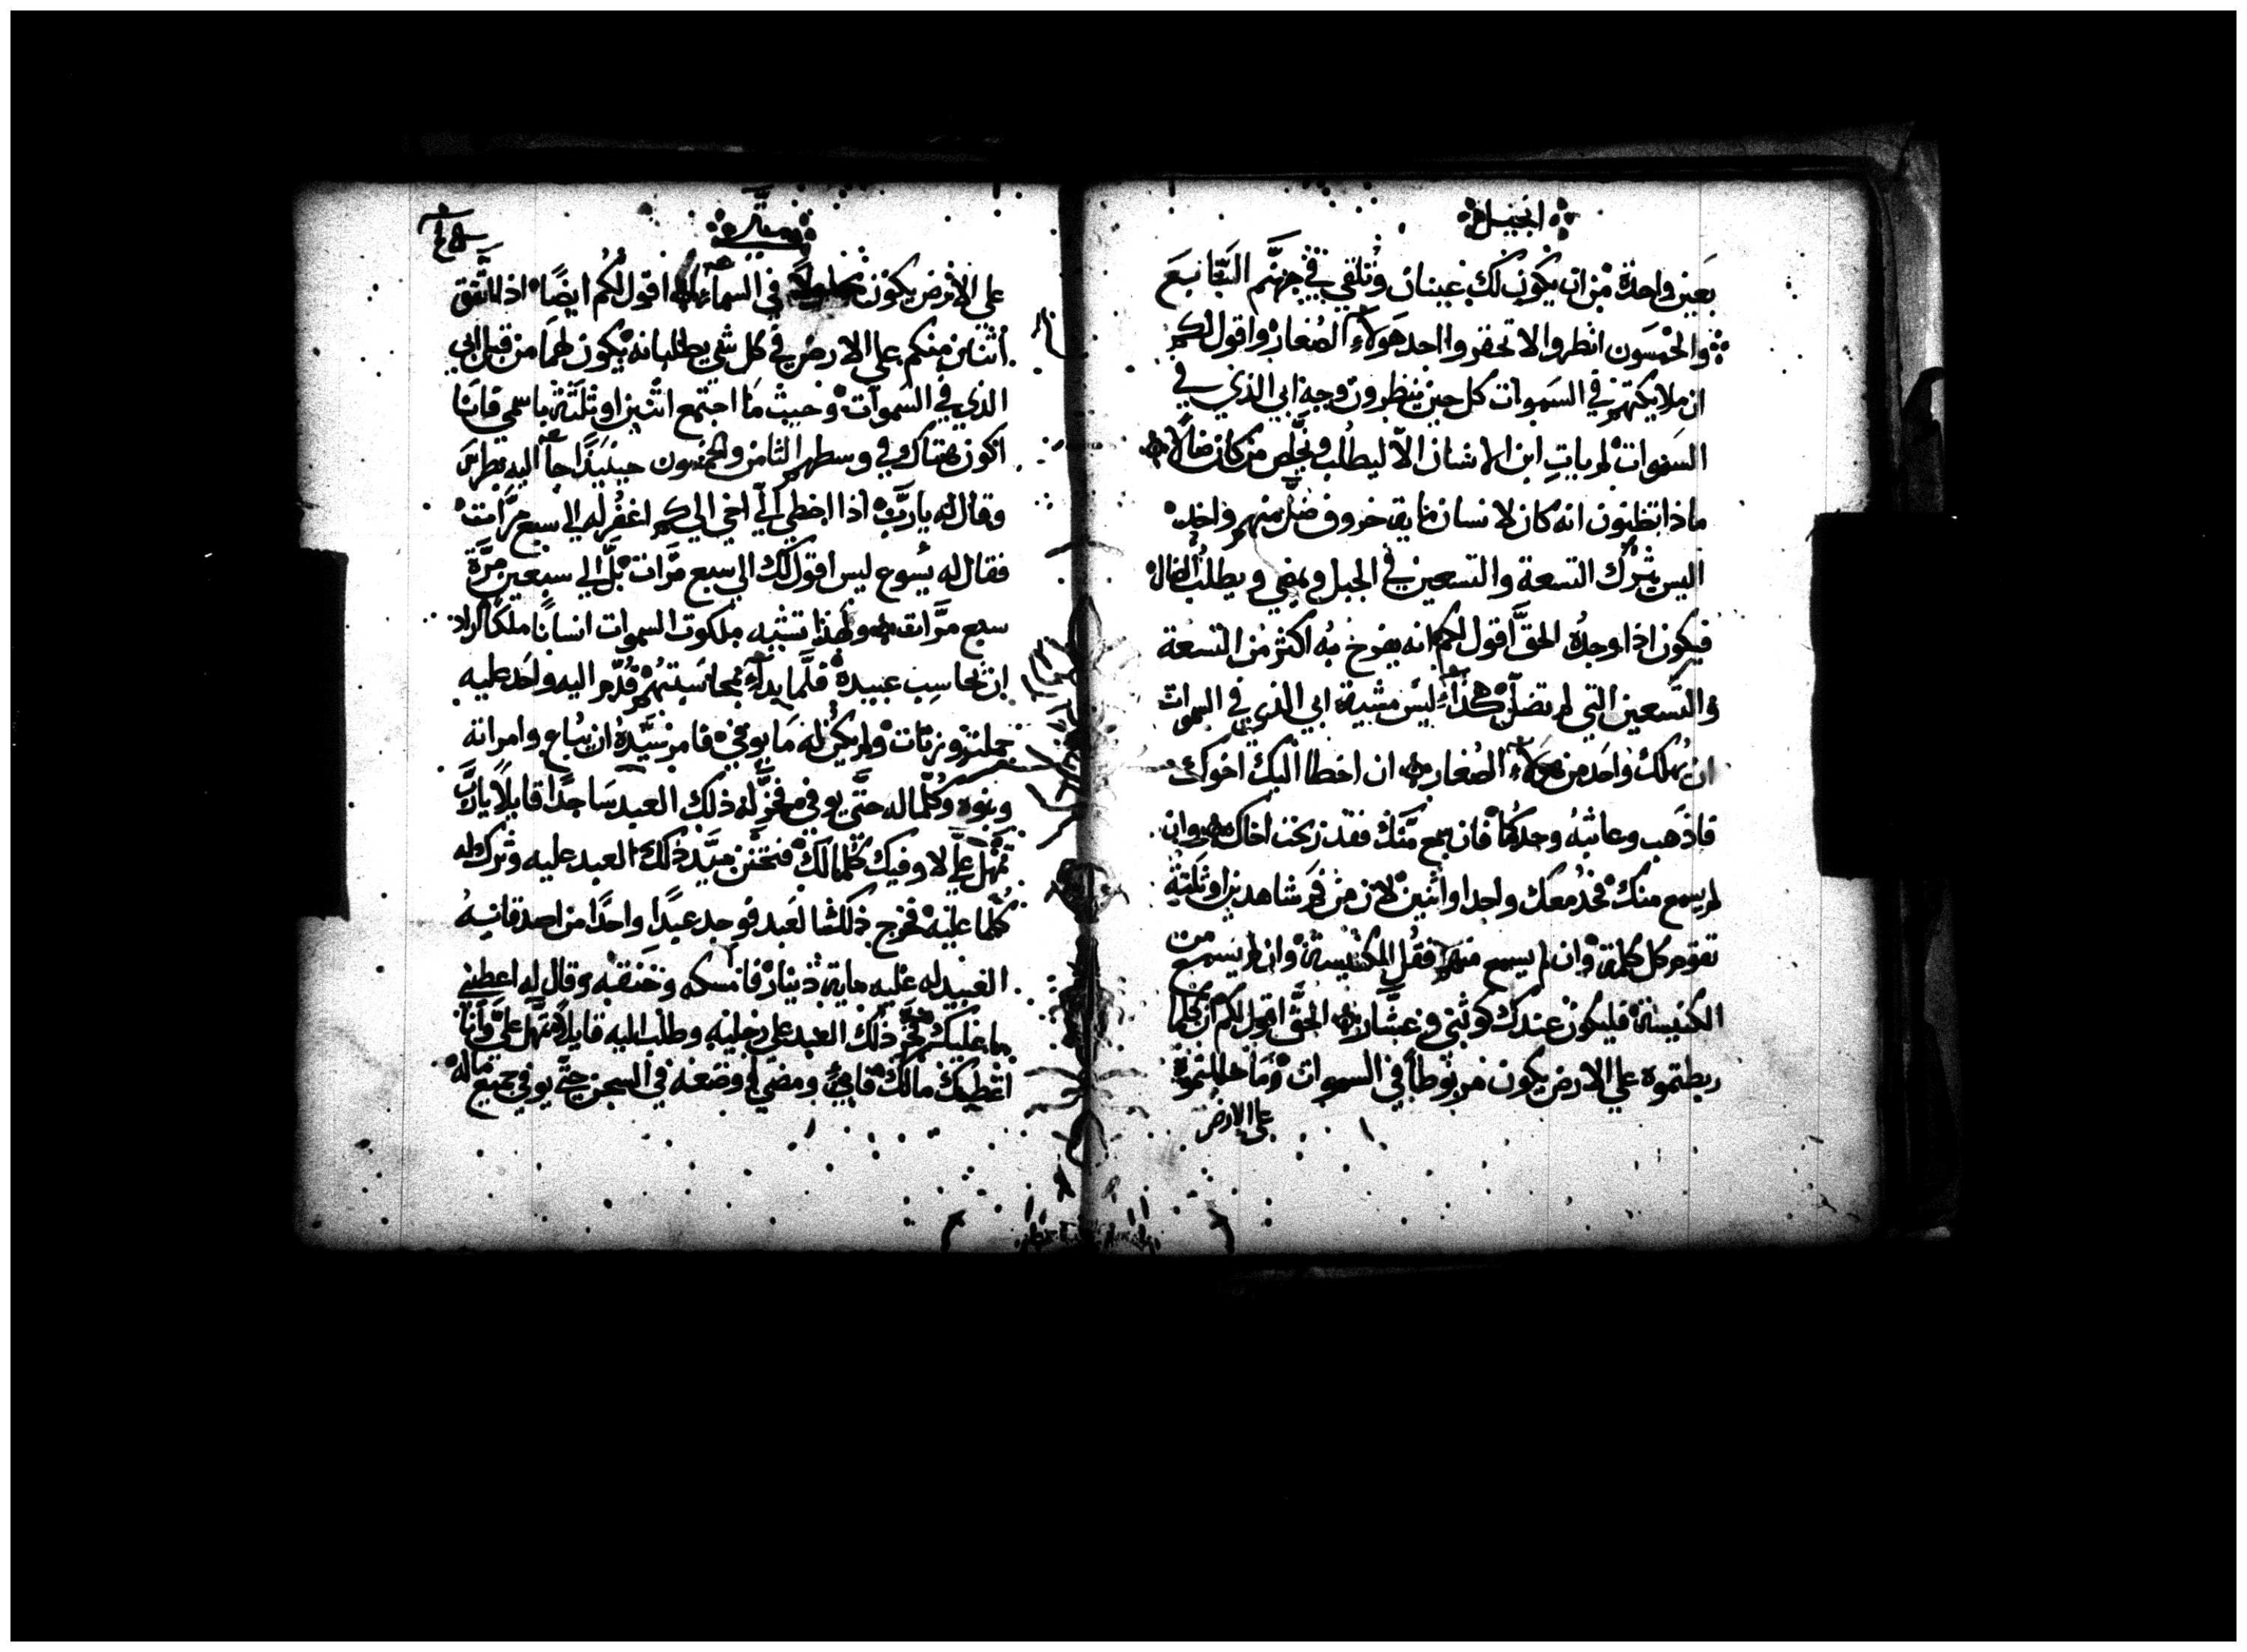 انجيل
بعين واحدة من ان يكون لك عينان وتلقي في جهنم
والخمسون انظروا لا تحقروا احد هولاء الصغار واقول لكم
ان ملايكتهم في السموات كل حين ينظرون وجه ابي الذي في
السموات لم يات ابن الانسان الا ليطلب ويخلص من كان ضالا
ماذا تظنون انه كان لانسان ماية خروف ضل منهم واحد
اليس يترك التسعة والتسعين في الجبل ويمضي ويطلب الضال
فيكون اذا وجده الحق اقول لكم انه يفرح به اكثر من التسعة
والتسعين التي لم تضل هكذا ليس مشية ابي الذي في السموات
ان يهلك واحد من هولاء الصغار ان اخطا اليك اخوك
فاذهب وعاتبه وحدكما فان سمع منك فقد ربحت اخاك وان
لم يسمع منك فخذ معك واحدا واثنين لان من فم شاهدين او ثلثة
تقوم كل كلمة وان لم يسمع منهم فقل للكنيسة وان لم يسمع من
الكنيسة فليكون عندك كوثني وعشار الحق اقول لكم ان كلما
ربطتموه علي الارض يكون مربوطا في السموات وما حللتموه
علي الارض
متي
علي الارض يكون محلولا في السماء اقول لكم ايضا اذا اتفق
اثنين منكم علي الارض في كل شي يطلبانه يكون لهما من قبل ابي
الذي في السموات وحيث ما اجتمع اثنين او ثلثة باسمي فانا
اكون هناك في وسطهم الثامن والخمسون حينيذا جا اليه بطرس
وقال له يا رب اذا اخطي الي اخي الي كم اغفر له الي سبع مرات
فقال له يسوع ليس اقول لك الي سبع مرات بل الي سبعين مرة
سبع مرات ولهذا تشبه ملكوت السموات انسانا ملكا اراد
ان يحاسب عبيده فلما بدا بمحاسبتهم قدم اليه واحد عليه
جملة وزنات ولم يكن له ما يوفي فامر سيده ان يباع وامراته
وبنوه وكلما له حتي يوفي فخر له ذلك العبد ساجدا قايلا يا رب
تمهل علي لاوفيك كلما لك فتحنن سيد ذلك العبد عليه وترك له
كلما عليه فخرج ذلك العبد فوجد عبدا واحدا من اصدقايه
العبيد له عليه ماية دينار فامسكه وخنقه وقال له اعطيني
ما عليك فخر ذلك العبد علي رجليه وطلب اليه قايلا تمهل علي وانا
اعطيك مالك فابي ومضي وضعه في السجن حتي يوفي جميع ماله